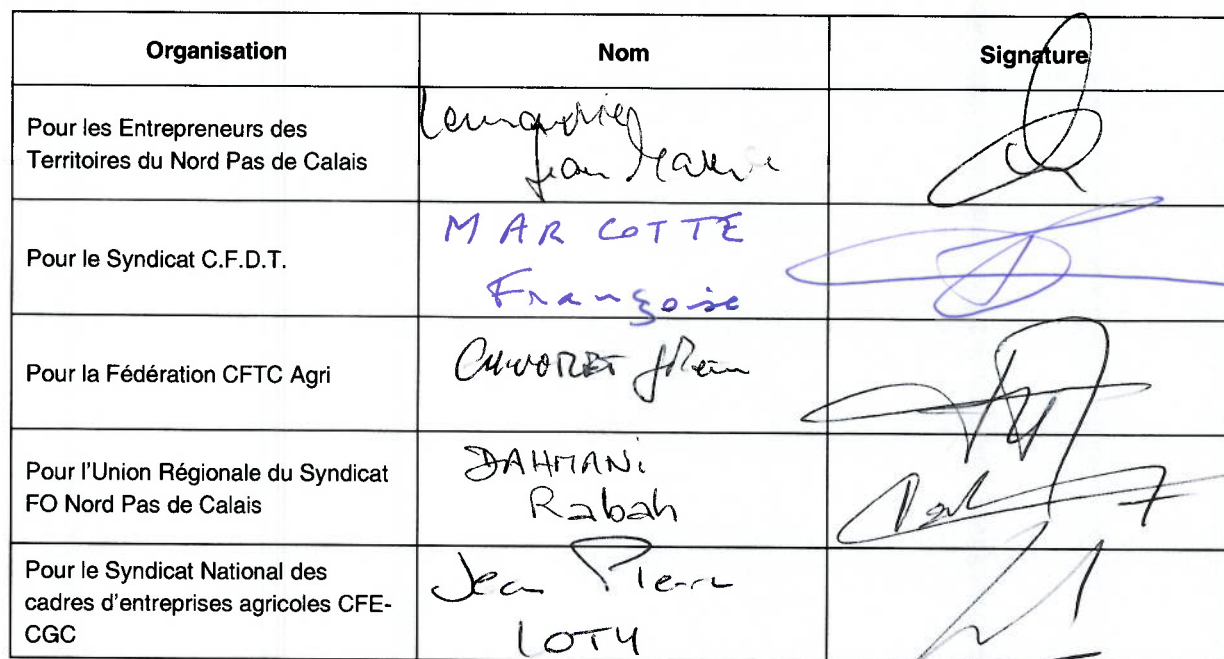 Organisation Nom Signature
Pour les Entrepreneurs des
Territoires du Nord Pas de Calais
Jean
Pour le Syndicat C.F.D.T.
MARCOTTE
Françoise
Pour la Fédération CFTC Agri
Pour l'Union Régionale du Syndicat
FO Nord Pas de Calais
DAHMANi
Rabah
Pour le Syndicat National des
cadres d'entreprises agricoles CFE-
CGC
Jean Pierre
LOTY